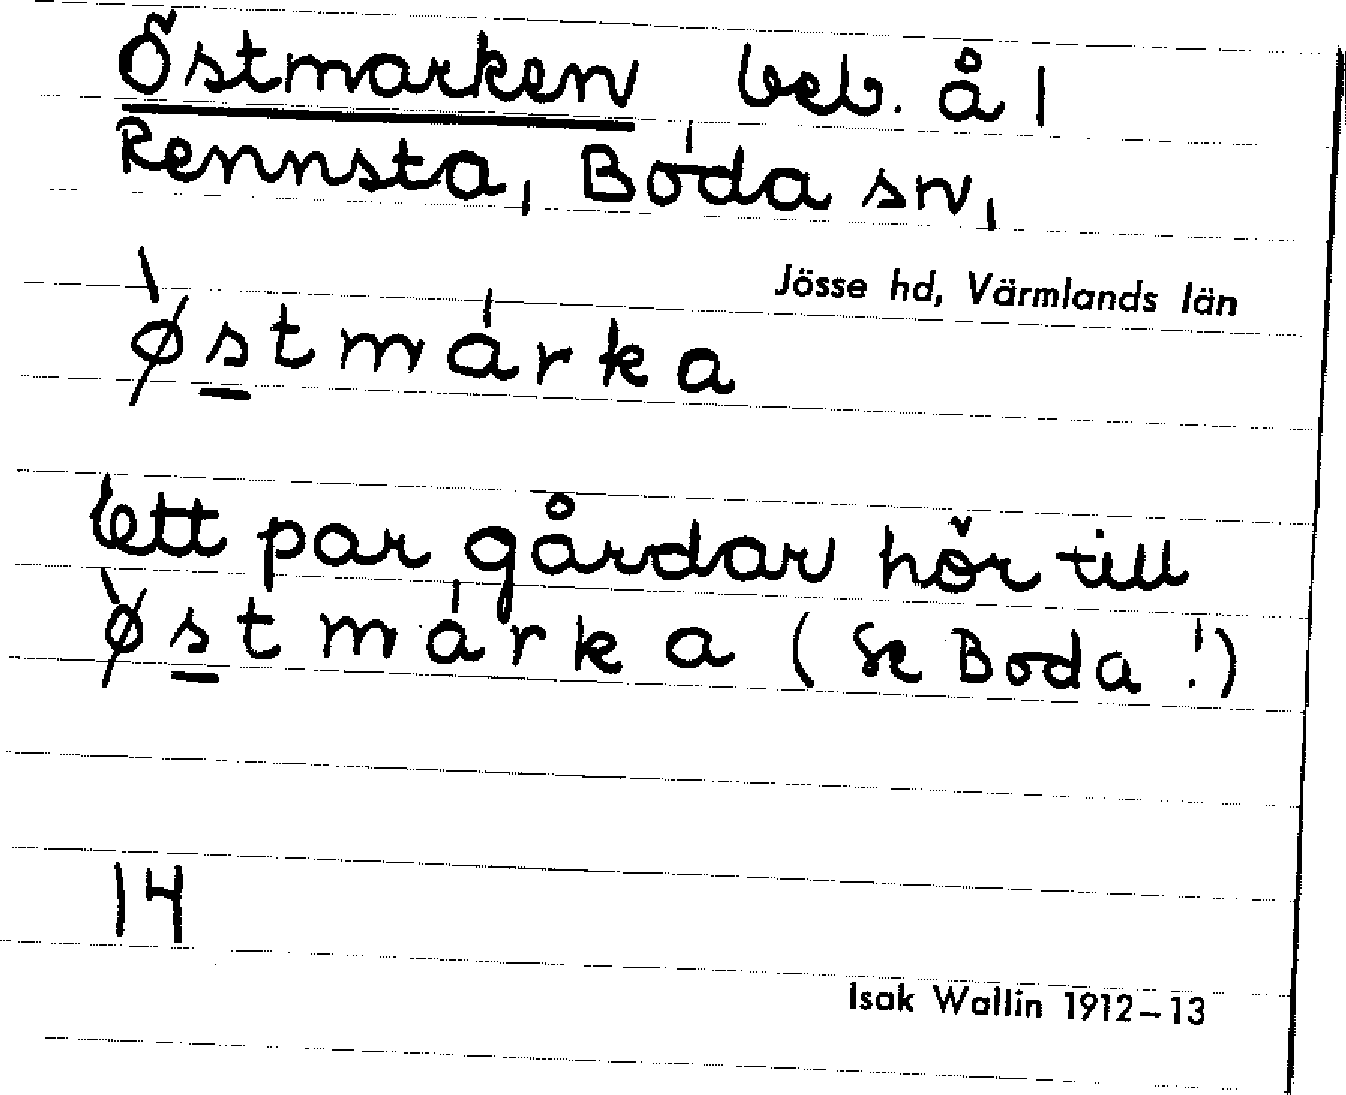 Östmarken beb. å 1
Rennsta, Boda sn,
Jösse hd, Värmlands län
ø̀stmárka
Ett par gårdar hör till
ø̀stmárka (Se Boda!)
14
Isak Wallin 1912–13